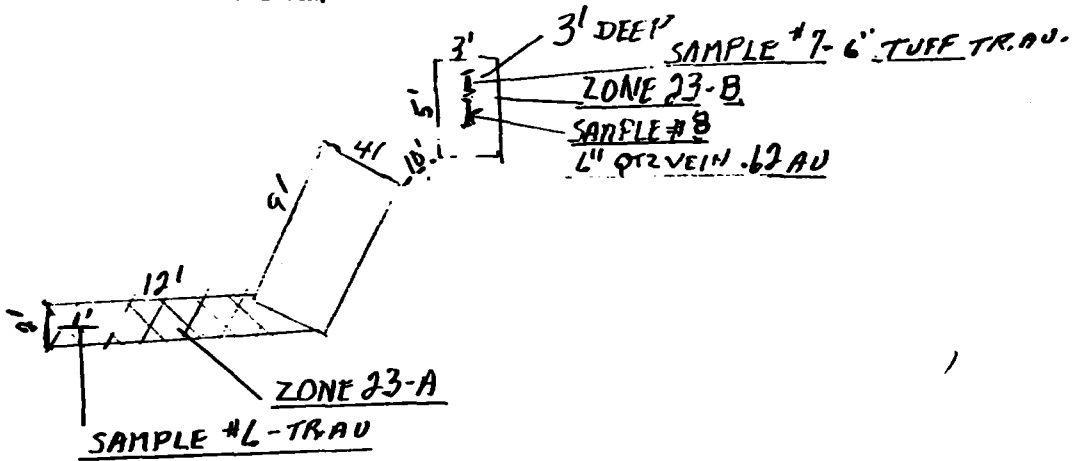 3' DEEP
3'
SAMPLE #7- 6" TUFF TR. AU.
5'
ZONE 23-B
SAMPLE #8
6" QTZ VEIN .62 AU
41
10'
9'
12'
1'
ZONE 23-A
SAMPLE #6 - TR AU